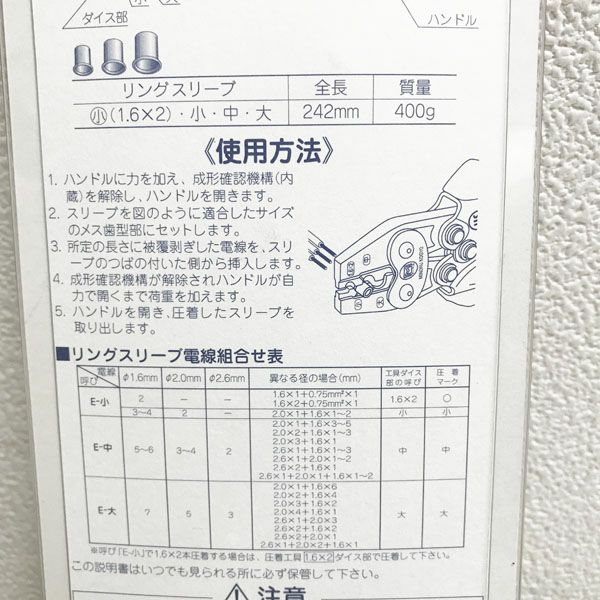 小 大
ダイス部
ハンドル
リングスリーブ 全長 質量
㋛(1.6×2)・小・中・大 242mm 400g
《使用方法》
1. ハンドルに力を加え、成形確認機構(内
蔵)を解除し、ハンドルを開きます。
2. スリーブを図のように適合したサイズ
のメス歯型部にセットします。
3. 所定の長さに被覆剥ぎした電線を、スリ
ーブのつばの付いた側から挿入します。
4. 成形確認機構が解除されハンドルが自
力で開くまで荷重を加えます。
5. ハンドルを開き、圧着したスリーブを
取り出します。
■リングスリーブ電線組合せ表
電線 呼び φ1.6mm φ2.0mm φ2.6mm 異なる径の場合(mm) 工具ダイス部の呼び 圧着マーク
E-小 2 − − 1.6×1+0.75mm²×1 1.6×2 ○
1.6×2+0.75mm²×1
3〜4 2 − 2.0×1+1.6×1〜2 小 小
E-中 5〜6 3〜4 2 2.0×1+1.6×3〜5 中 中
2.0×2+1.6×1〜3
2.0×3+1.6×1
2.6×1+1.6×1〜3
2.6×1+2.0×1〜2
2.6×2+1.6×1
2.6×1+2.0×1+1.6×1〜2
E-大 7 5 3 2.0×1+1.6×6 大 大
2.0×2+1.6×4
2.0×3+1.6×2
2.0×4+1.6×1
2.6×1+2.0×3
2.6×2+1.6×2
2.6×2+2.0×1
2.6×1+2.0×2+1.6×1
※呼び「E-小」で1.6×2本圧着する場合は、圧着工具1.6×2ダイス部で圧着して下さい。
この説明書はいつでも見られる所に必ず保管して下さい。
⚠注意